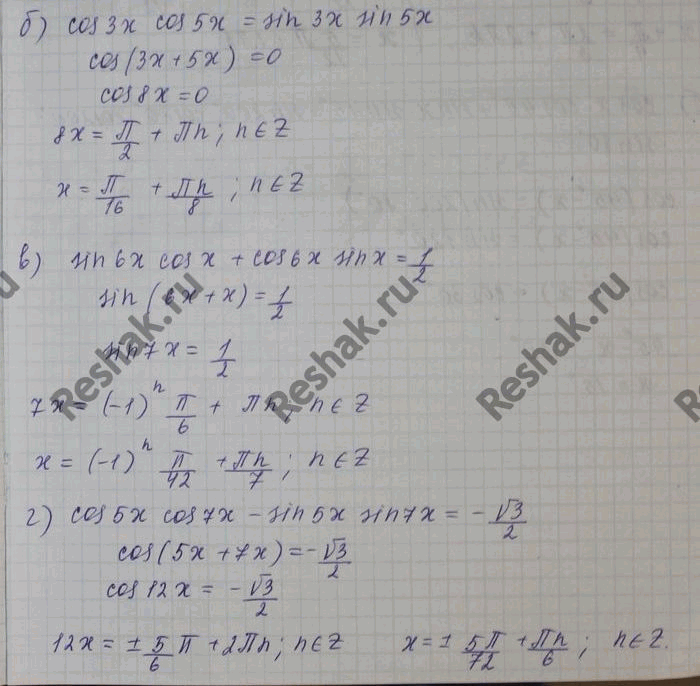 б) cos 3x cos 5x = sin 3x sin 5x
cos(3x+5x) = 0
cos 8x = 0
8x = π/2 + πn; n∈Z
x = π/16 + πn/8; n∈Z
в) sin 6x cos x + cos 6x sin x = 1/2
sin (6x+x) = 1/2
sin 7x = 1/2
7x = (-1)^n π/6 + πn n∈Z
x = (-1)^n π/42 + πn/7; n∈Z
г) cos 5x cos 7x - sin 5x sin 7x = -√3/2
cos(5x+7x) = -√3/2
cos 12x = -√3/2
12x = ± 5/6 π + 2πn; n∈Z x = ± 5π/72 + πn/6; n∈Z.
Reshak.ru
Reshak.ru
Reshak.ru